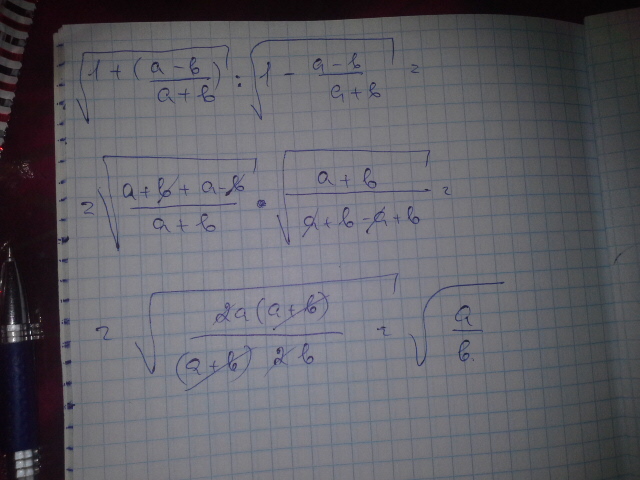 √(1 + (a-b)/(a+b)) : √(1 - (a-b)/(a+b)) =
= √((a+b+a-b)/(a+b)) • √((a+b)/(a+b-a+b)) =
= √(2a(a+b)/((a+b)2b)) = √(a/b)